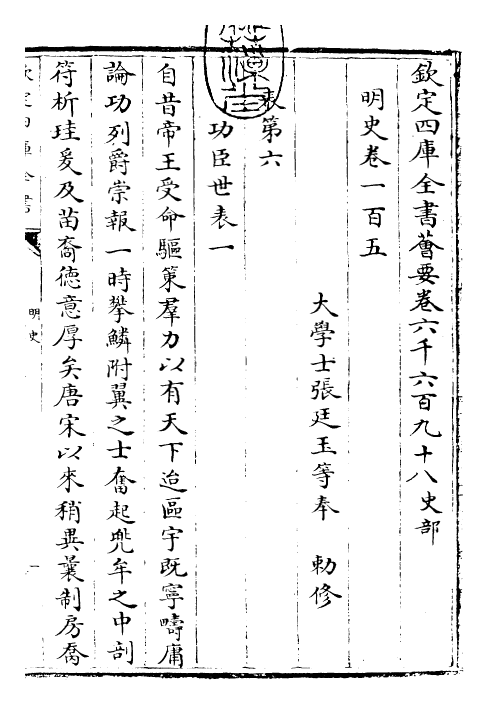 欽定四庫全書薈要卷六千六百九十八史部
明史卷一百五
大學士張廷玉等奉　勅修
表第六
功臣世表一
自昔帝王受命驅策羣力以有天下迨區宇既寧疇庸
論功列爵崇報一時攀鱗附翼之士奮起兜牟之中剖
符析珪爰及苗裔徳意厚矣唐宋以來稍異曩制房喬
欽定四庫全書
明史
一